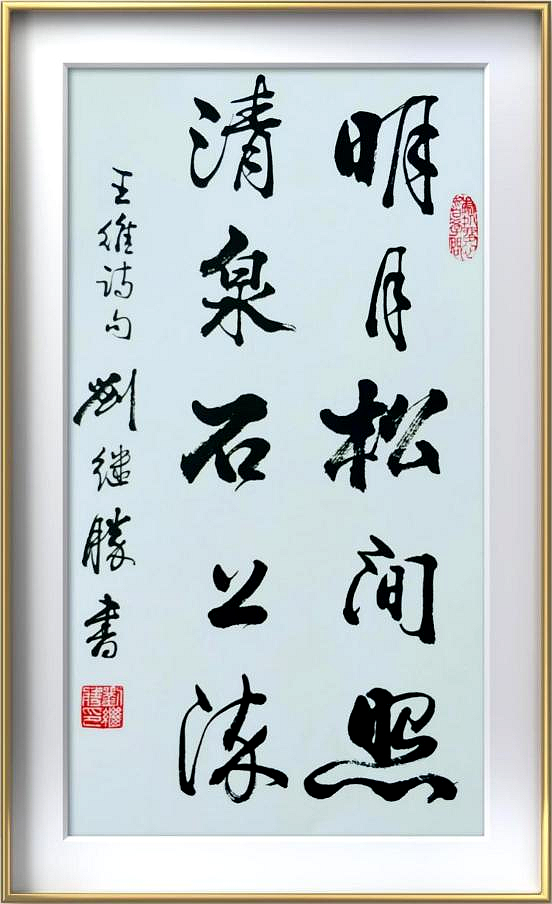 明月松间照
清泉石上流
王维诗句 刘继胜书
刘继胜印